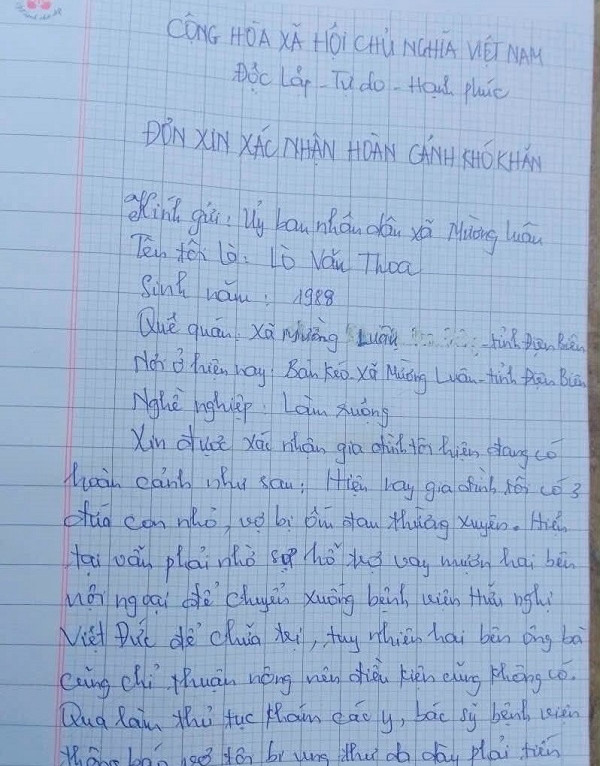 CỘNG HÒA XÃ HỘI CHỦ NGHĨA VIỆT NAM
Độc Lập - Tự do - Hạnh phúc
ĐƠN XIN XÁC NHẬN HOÀN CẢNH KHÓ KHĂN
Kính gửi: Ủy ban nhân dân xã Mường Luân
Tên tôi là: Lò Văn Thoa
Sinh năm: 1988
Quê quán: Xã Mường Luân - tỉnh Điện Biên
Nơi ở hiện nay: Bản Kéo - Xã Mường Luân - tỉnh Điện Biên
Nghề nghiệp: Làm ruộng
Xin được xác nhận gia đình tôi hiện đang có
hoàn cảnh như sau: Hiện nay gia đình tôi có 3
đứa con nhỏ, vợ bị ốm đau thường xuyên. Hiện
tại vẫn phải nhờ sự hỗ trợ vay mượn hai bên
nội ngoại để chuyển xuống bệnh viện Hữu nghị
Việt Đức để chữa trị, tuy nhiên hai bên ông bà
cũng chỉ thuần nông nên điều kiện cũng không có.
Qua làm thủ tục khám các y, bác sỹ bệnh viện
thông báo vợ tôi bị ung thư dạ dày phải tiến